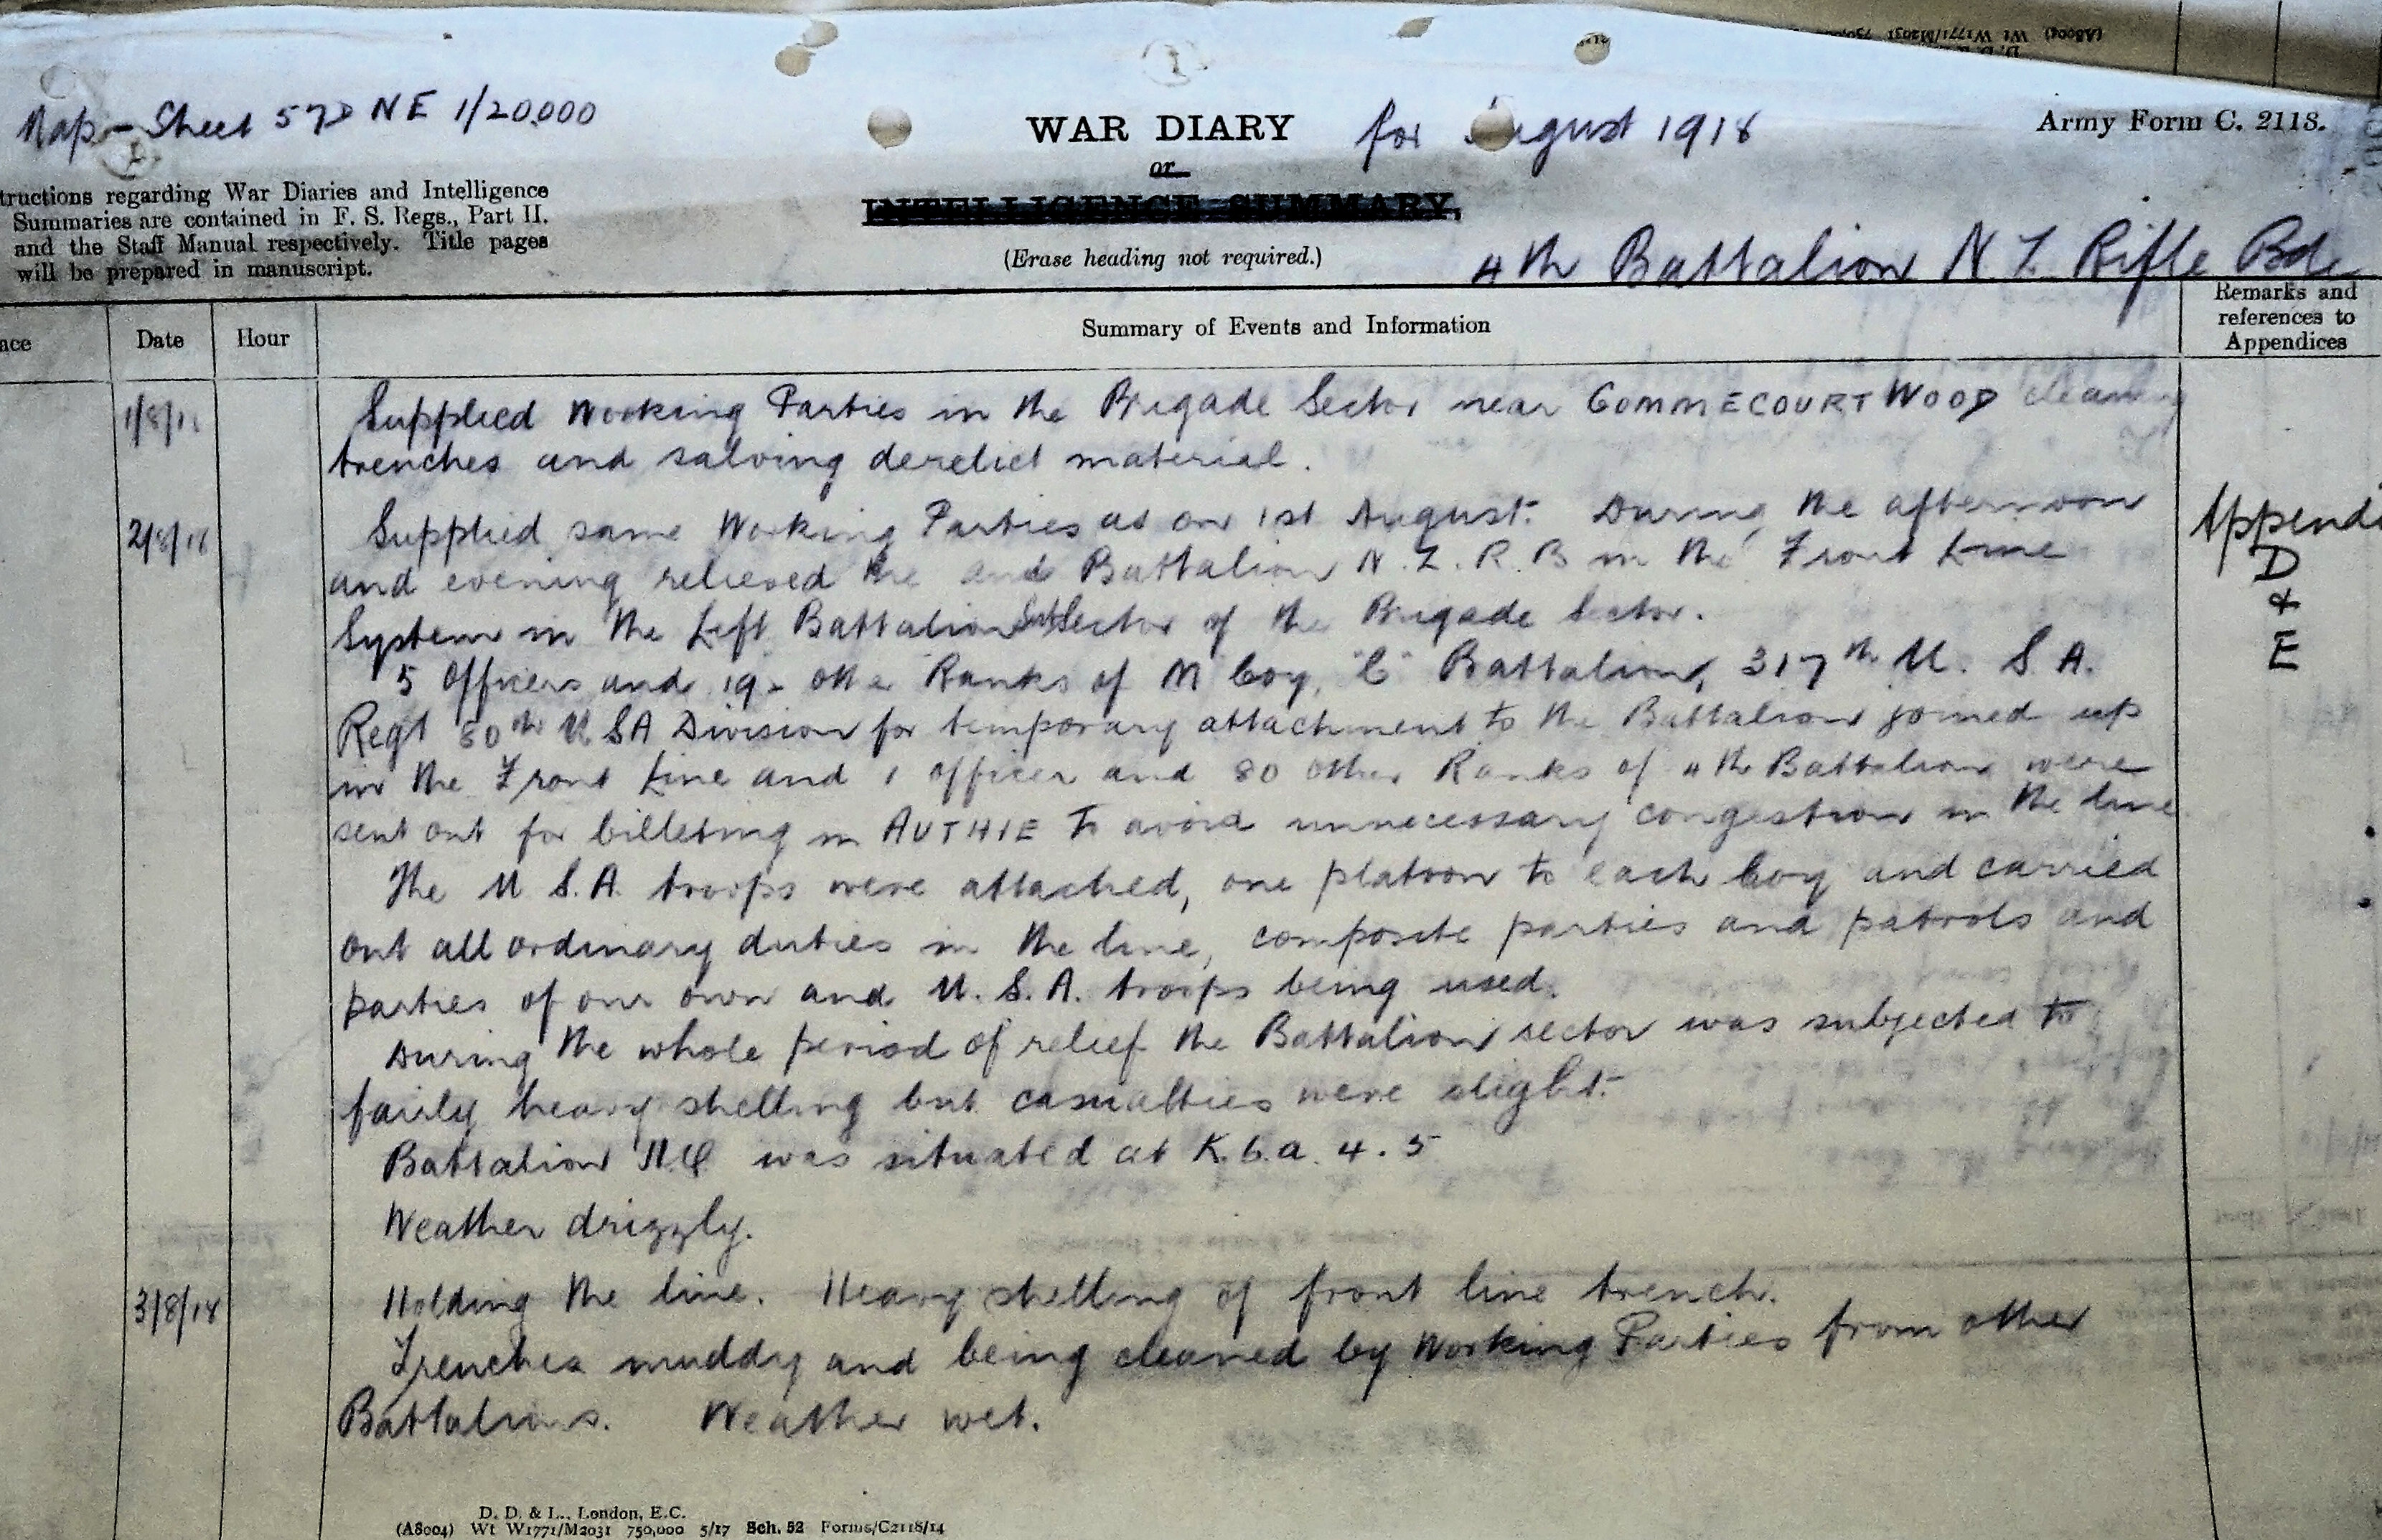 Map - Sheet 57D NE 1/20,000
WAR DIARY for August 1918
Army Form C. 2118.
or
INTELLIGENCE SUMMARY.
(Erase heading not required.)
tructions regarding War Diaries and Intelligence
Summaries are contained in F. S. Regs., Part II.
and the Staff Manual respectively. Title pages
will be prepared in manuscript.
4th Battalion N Z Rifle Bde
ace Date Hour Summary of Events and Information Remarks and references to Appendices
1/8/18 Supplied Working Parties in the Brigade Sector near GOMMECOURT WOOD cleaning
trenches and salving derelict material.
2/8/18 Supplied same Working Parties as on 1st August. During the afternoon
and evening relieved the 2nd Battalion N.Z.R.B in the Front Line
System in the Left Battalion SubSector of the Brigade Sector.
Appendi
D
&
E
5 Officers and 19- other Ranks of M Coy, "C" Battalion, 317th U. S. A.
Regt 80th U SA Division for temporary attachment to the Battalion joined up
in the Front Line and 1 officer and 80 other Ranks of 4th Battalion were
sent out for billeting in AUTHIE to avoid unnecessary congestion in the line
The U S.A. troops were attached, one platoon to each Coy and carried
out all ordinary duties in the line, composite parties and patrols and
parties of our own and U.S.A. troops being used.
During the whole period of relief the Battalion sector was subjected to
fairly heavy shelling but casualties were slight.
Battalion HQ was situated at K.6.a.4.5
Weather drizzly.
3/8/18 Holding the line. Heavy shelling of front line trench.
Trenches muddy and being cleaned by Working Parties from other
Battalions. Weather wet.
D. D. & L., London, E.C.
(A8004) Wt W1771/M2031 750,000 5/17 Sch. 52 Forms/C2118/14